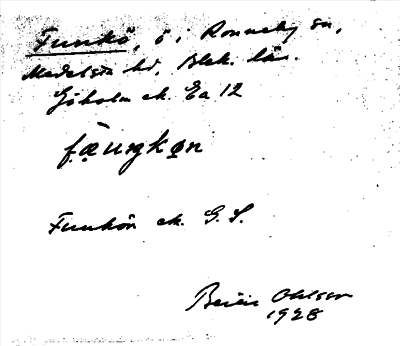 Funkö, ö i Ronneby sn,
Medelsta hd, Blek. län.
Göholm ek. Ea 12
fæuŋkøn
Funkön ek. G. S.
Ohlsson
1928